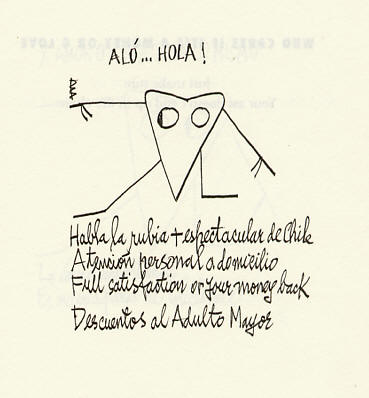 ALÓ... HOLA!
Habla la rubia + espectacular de Chile
Atención personal a domicilio
Full satisfaction or your money back
Descuentos al Adulto Mayor